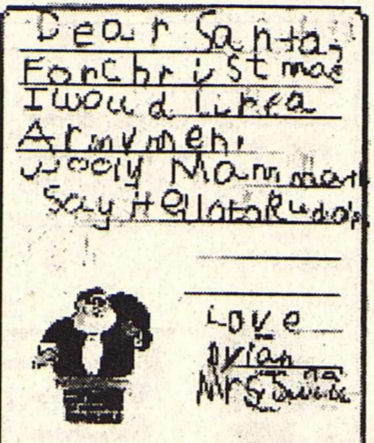 Dear Santa,
For Christmas
I woud like a
Army men,
wooly Mammath
Say Hello to Rudop
Love
Brian
Mrs